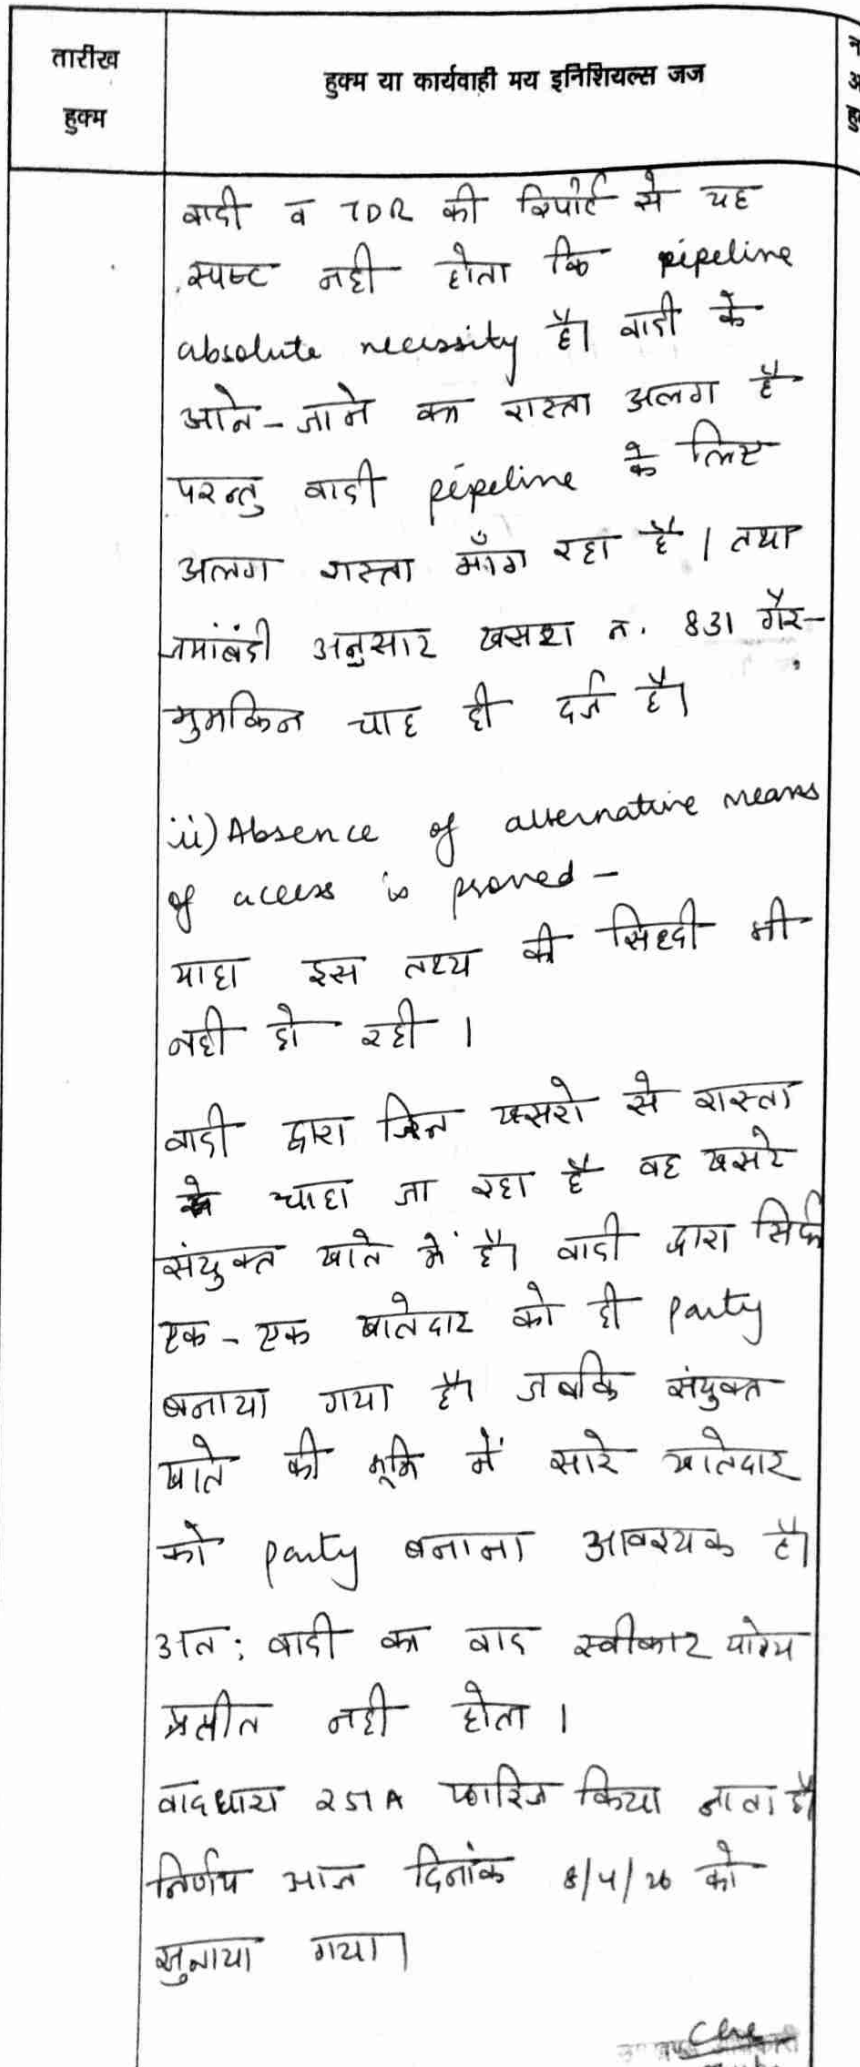 तारीख
हुक्म
हुक्म या कार्यवाही मय इनिशियल्स जज
वादी व TDR की रिपोर्ट से यह
स्पष्ट नही होता कि pipeline
absolute necessity है। वादी के
आने-जाने का रास्ता अलग है
परन्तु वादी pipeline के लिए
अलग रास्ता माँग रहा है। तथा
जमांबंदी अनुसार खसरा न. 831 गैर-
मुमकिन चाह ही दर्ज है।
ii) Absence of alternative means
of access is proved -
याहा इस तथ्य की सिध्दी भी
नही हो रही ।
वादी द्वारा जिन खसरो से रास्ता
चाहा जा रहा है वह खसरे
संयुक्त खाते में है। वादी द्वारा सिर्फ
एक-एक खातेदार को ही party
बनाया गया है। जबकि संयुक्त
खाते की भूमि में सारे खातेदार
को party बनाना आवश्यक है।
अत: वादी का वाद स्वीकार योग्य
प्रतीत नही होता ।
वाद धारा 251A खारिज किया जाता है।
निर्णय आज दिनांक 8/4/26 को
सुनाया गया।